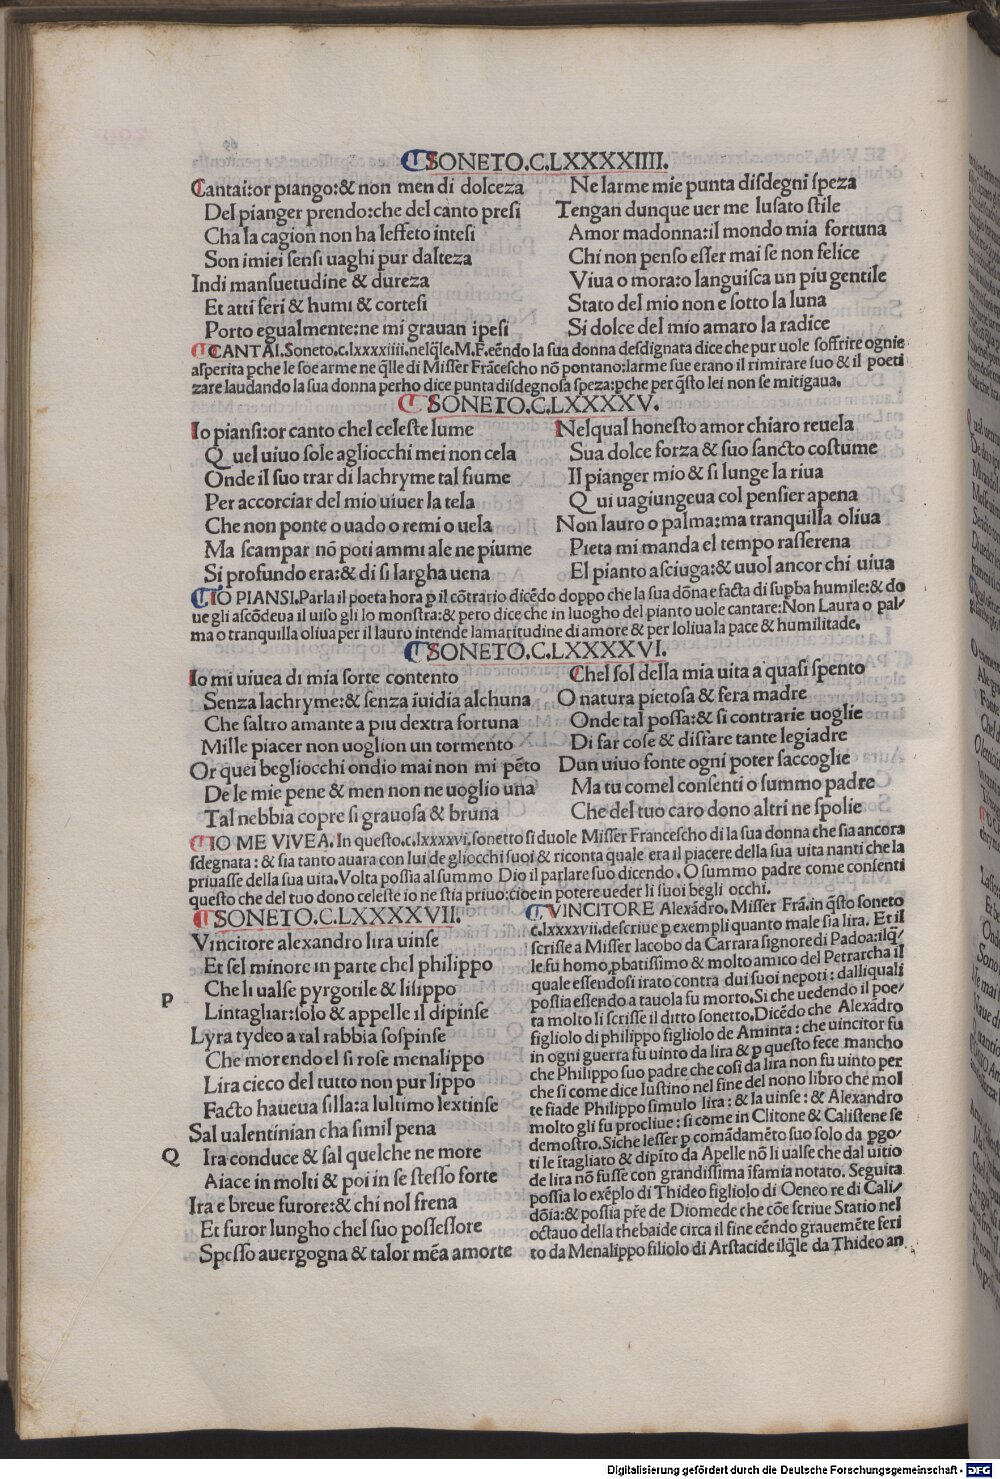 SONETO.C.LXXXXIIII.
Cantai:or piango:& non men di dolceza
Del pianger prendo:che del canto presi
Cha la cagion non ha leffeto intesi
Son imiei sensi uaghi pur dalteza
Indi mansuetudine & dureza
Et atti feri & humi & cortesi
Porto egualmente:ne mi grauan ipesi
Ne larme mie punta disdegni speza
Tengan dunque uer me lusato stile
Amor madonna:il mondo mia fortuna
Chi non penso esser mai se non felice
Viua o mora:o languisca un piu gentile
Stato del mio non e sotto la luna
Si dolce del mio amaro la radice
CANTAI.Soneto.c.lxxxxiiii.nelq̃le.M.F.eẽndo la sua donna desdignata dice che pur uole soffrire ognie
asperita pche le soe arme ne q̃lle di Misser Frãcescho nõ pontano:larme sue erano il rimirare suo & il poeti
zare laudando la sua donna perho dice punta disdegnosa speza:pche per q̃sto lei non se mitigaua.
SONETO.C.LXXXXV.
Io piansi:or canto chel celeste lume
Quel uiuo sole agliocchi mei non cela
Onde il suo trar di lachryme tal fiume
Per accorciar del mio uiuer la tela
Che non ponte o uado o remi o uela
Ma scampar nõ poti ammi ale ne piume
Si profundo era:& di si largha uena
Nelqual honesto amor chiaro reuela
Sua dolce forza & suo sancto costume
Il pianger mio & si lunge la riua
Qui uagiungeua col pensier apena
Non lauro o palma:ma tranquilla oliua
Pieta mi manda el tempo rasserena
El pianto asciuga:& uuol ancor chi uiua
IO PIANSI.Parla il poeta hora p il cõtrario dicẽdo doppo che la sua dõna e facta di supba humile:& do
ue gli ascõdeua il uiso gli lo monstra:& pero dice che in luogho del pianto uole cantare:Non Laura o pal/
ma o tranquilla oliua per il lauro intende lamaritudine di amore & per loliua la pace & humilitade.
SONETO.C.LXXXXVI.
Io mi uiuea di mia sorte contento
Senza lachryme:& senza iuidia alchuna
Che saltro amante a piu dextra fortuna
Mille piacer non uoglion un tormento
Or quei begliocchi ondio mai non mi pẽto
De le mie pene & men non ne uoglio una
Tal nebbia copre si grauosa & bruna
Chel sol della mia uita a quasi spento
O natura pietosa & fera madre
Onde tal possa:& si contrarie uoglie
Di far cose & disfare tante legiadre
Dun uiuo fonte ogni poter saccoglie
Ma tu comel consenti o summo padre
Che del tuo caro dono altri ne spolie
IO ME VIVEA.In questo.c.lxxxxvi.sonetto si duole Misser Francescho di la sua donna che sia ancora
sdegnata : & sia tanto auara con lui de gliocchi suoi & riconta quale era il piacere della sua uita nanti che la
priuasse della sua uita.Volta possia al summo Dio il parlare suo dicendo.O summo padre come consenti
questo che del tuo dono celeste io ne stia priuo:cioe in potere ueder li suoi begli occhi.
SONETO.C.LXXXXVII.
Vincitore alexandro lira uinse
Et fel minore in parte chel philippo
Che li ualse pyrgotile & lisippo
P
Lintagliar:solo & appelle il dipinse
Lyra tydeo a tal rabbia sospinse
Che morendo el si rose menalippo
Lira cieco del tutto non pur lippo
Facto haueua silla:a lultimo lextinse
Sal ualentinian cha simil pena
Q
Ira conduce & sal quelche ne more
Aiace in molti & poi in se stesso forte
Ira e breue furore:& chi nol frena
Et furor lungho chel suo possessore
Spesso auergogna & talor mẽa amorte
VINCITORE Alexãdro.Misser Frã.in q̃sto soneto
c.lxxxxvii.descriue p exempli quanto male sia lira. Et il
scrisse a Misser Iacobo da Carrara signore di Padoa:ilq̃/
le fu homo pbatissimo & molto amico del Petrarcha il
quale essendosi irato contra dui suoi nepoti : dalliquali
possia essendo a tauola fu morto.Si che uedendo il poe/
ta molto li scrisse il ditto sonetto.Dicẽdo che Alexãdro
figliolo di philippo figliolo de Aminta : che uincitor fu
in ogni guerra fu uinto da lira & p questo fece mancho
che Philippo suo padre che cosi da lira non fu uinto per
che si come dice Iustino nel fine del nono libro che mol
te fiade Philippo simulo lira : & la uinse : & Alexandro
molto gli fu procliue : si come in Clitone & Calistene se
demostro.Siche lesser p comãdamẽto suo solo da pgo/
ti le ĩtagliato & dipĩto da Apelle nõ li ualse che dal uitio
de lira nõ fusse con grandissima ĩfamia notato. Seguita
possia lo exẽplo di Thideo figliolo di Oeneo re di Cali/
dõia:& possia pr̃e de Diomede che cõe scriue Statio nel
octauo della thebaide circa il fine eẽndo grauemẽte feri
to da Menalippo filiolo di Arstacide ilq̃le da Thideo an
Digitalisierung gefördert durch die Deutsche Forschungsgemeinschaft - DFG